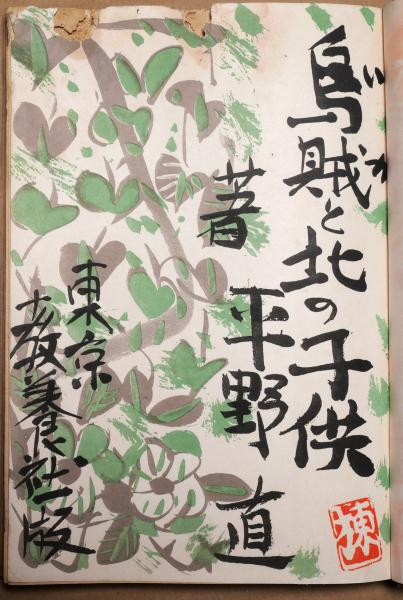 烏賊と北の子供
いか
著 平野直
東京
教養社版
棟